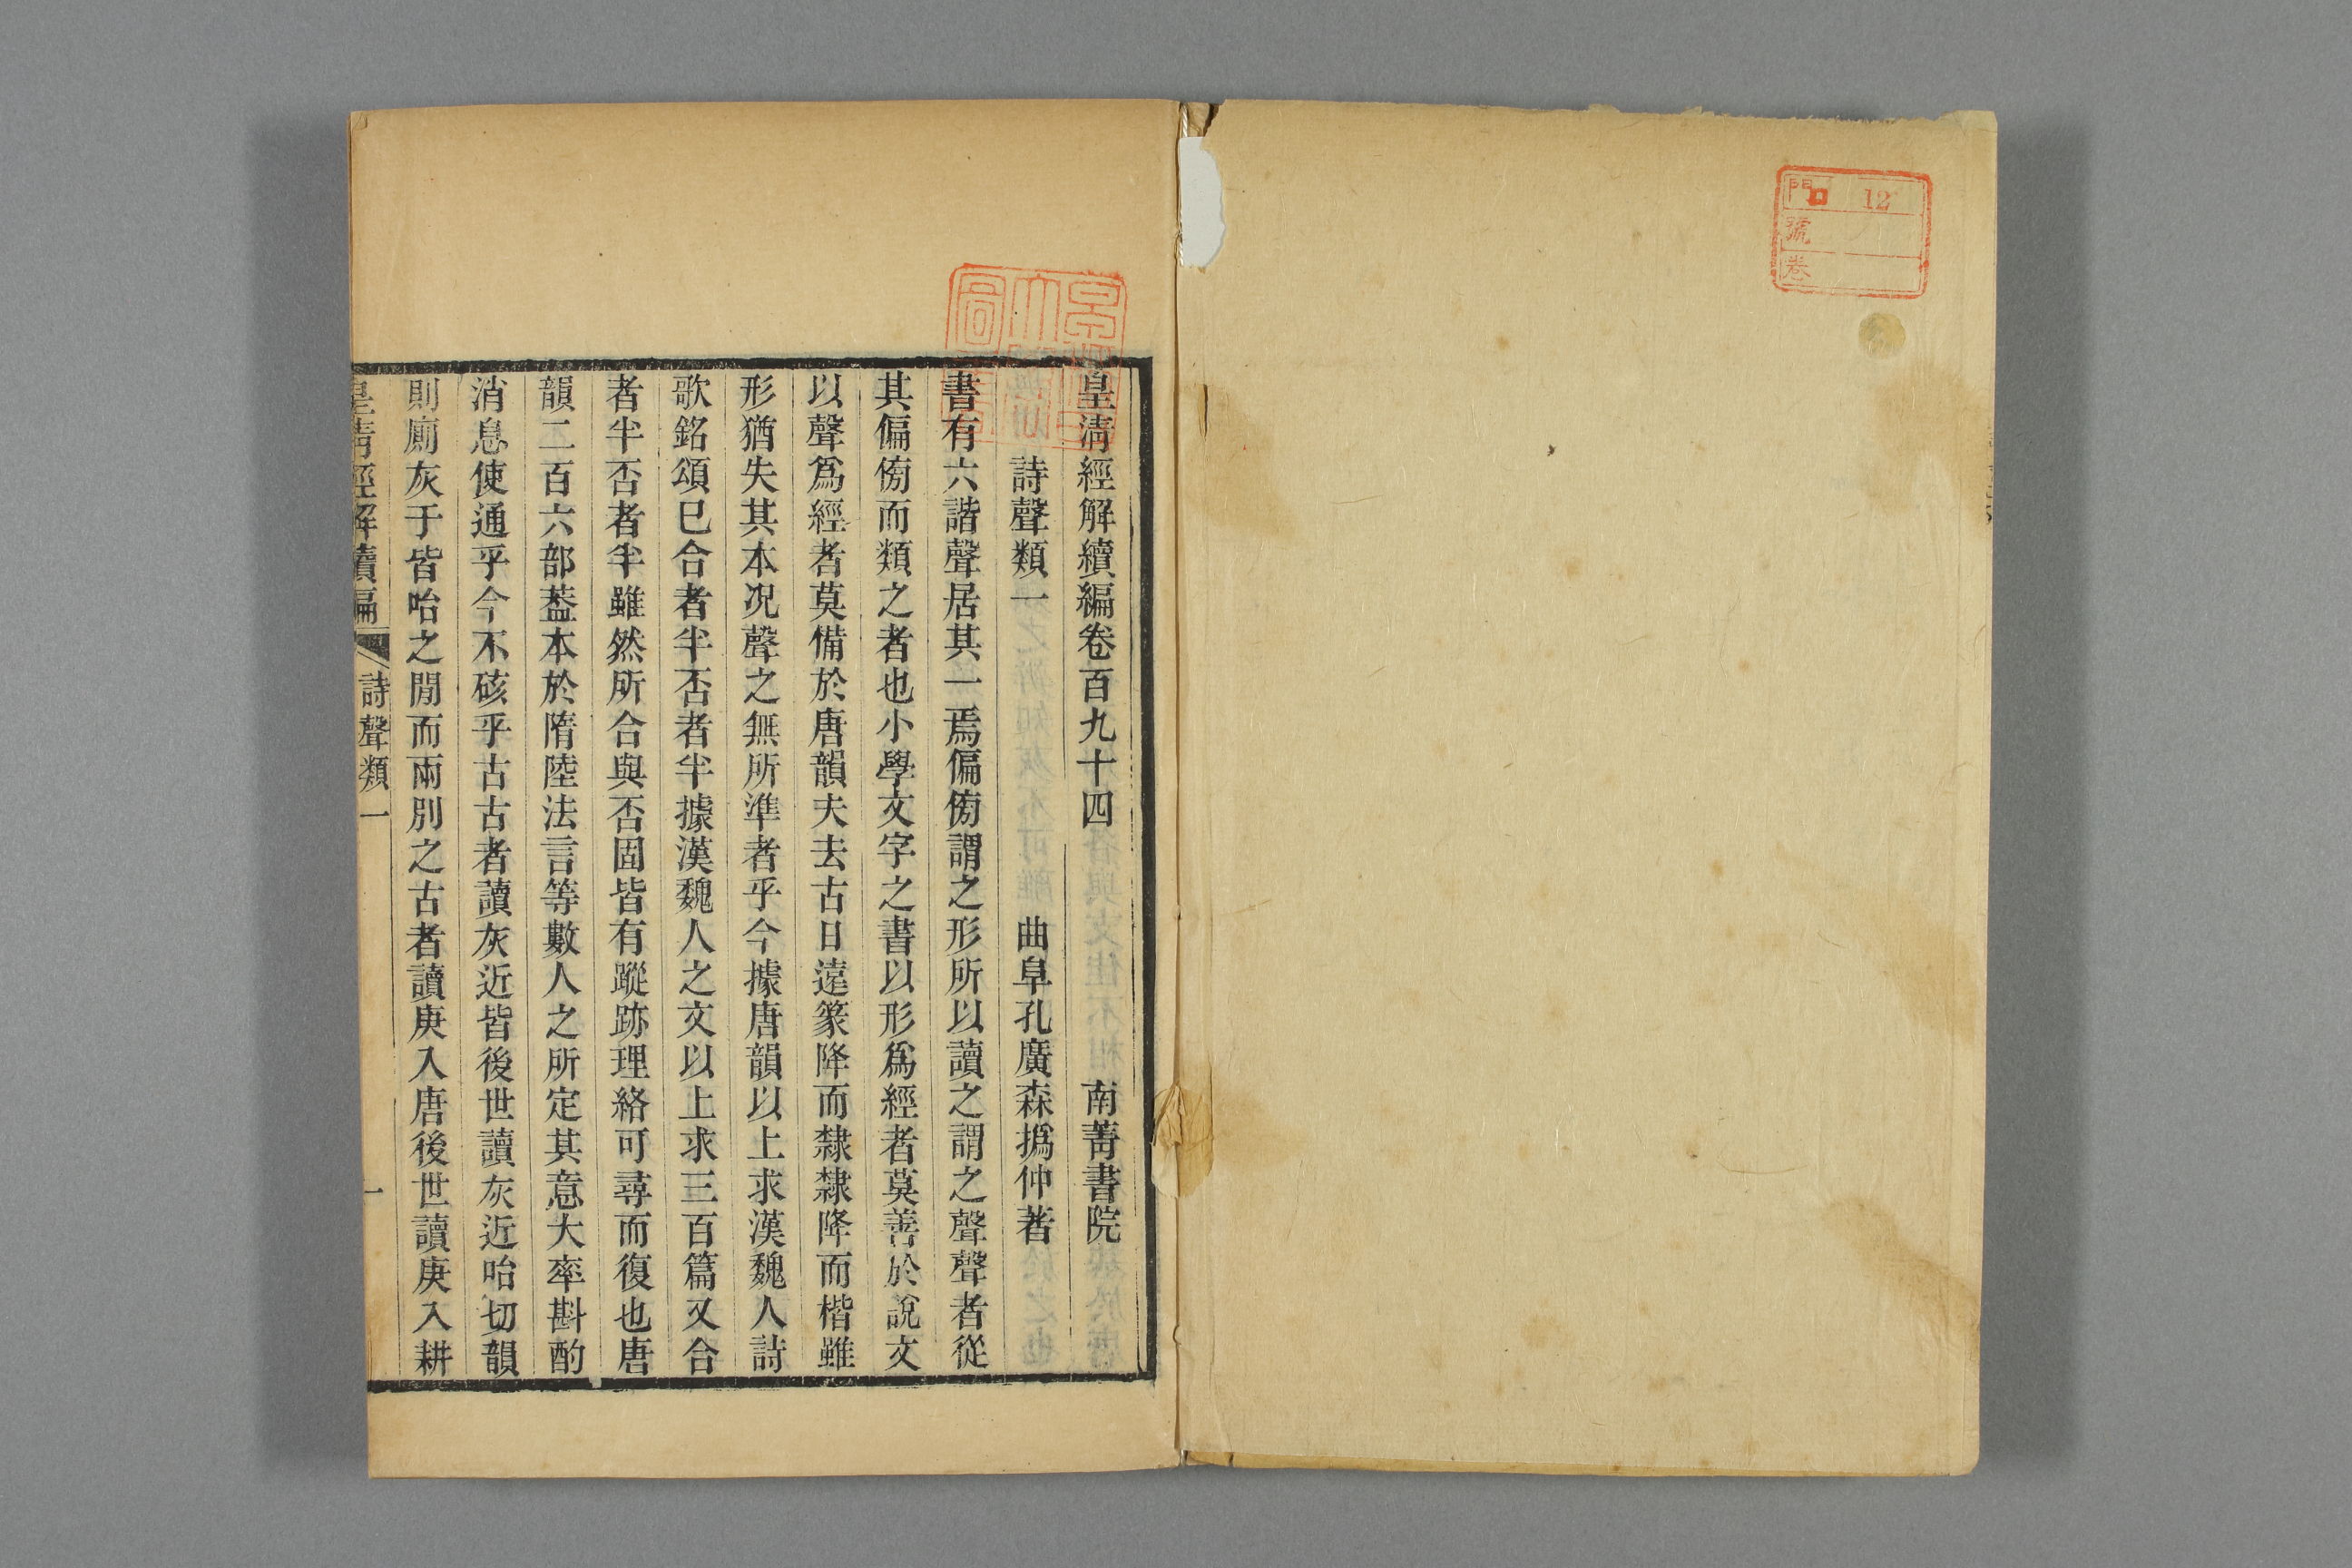 門 12
號
卷
皇清經解續編卷百九十四 南菁書院
詩聲類一 曲阜孔廣森撝仲著
書有六諧聲居其一焉偏㑃謂之形所以讀之謂之聲聲者從
其偏㑃而類之者也小學文字之書以形爲經者莫善於說文
以聲爲經者莫備於唐韻夫去古日遠篆降而隸隸降而楷雖
形猶失其本况聲之無所準者乎今據唐韻以上求漢魏人詩
歌銘頌已合者半否者半據漢魏人之文以上求三百篇又合
者半否者半雖然所合與否固皆有蹤跡理絡可尋而復也唐
韻二百六部葢本於隋陸法言等數人之所定其意大率斟酌
消息使通乎今不硋乎古古者讀灰近皆後世讀灰近咍切韻
則廁灰于皆咍之閒而兩別之古者讀庚入唐後世讀庚入耕
皇清經解續編 詩聲類一 一